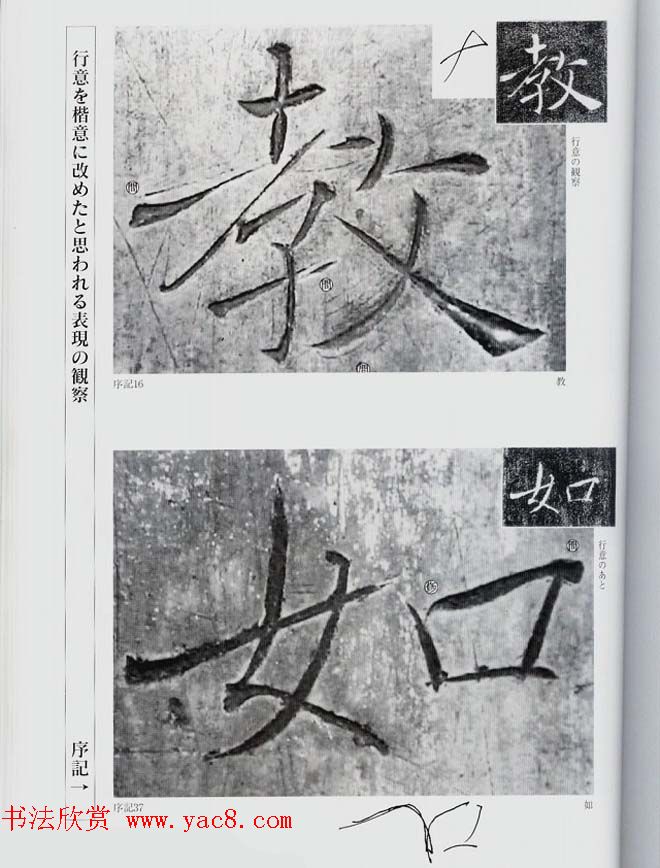 行意を楷意に改めたと思われる表現の観察
序記→
教
教
行意の観察
序記16
教
如
如
行意のあと
序記37
如
书法欣赏 www.yac8.com